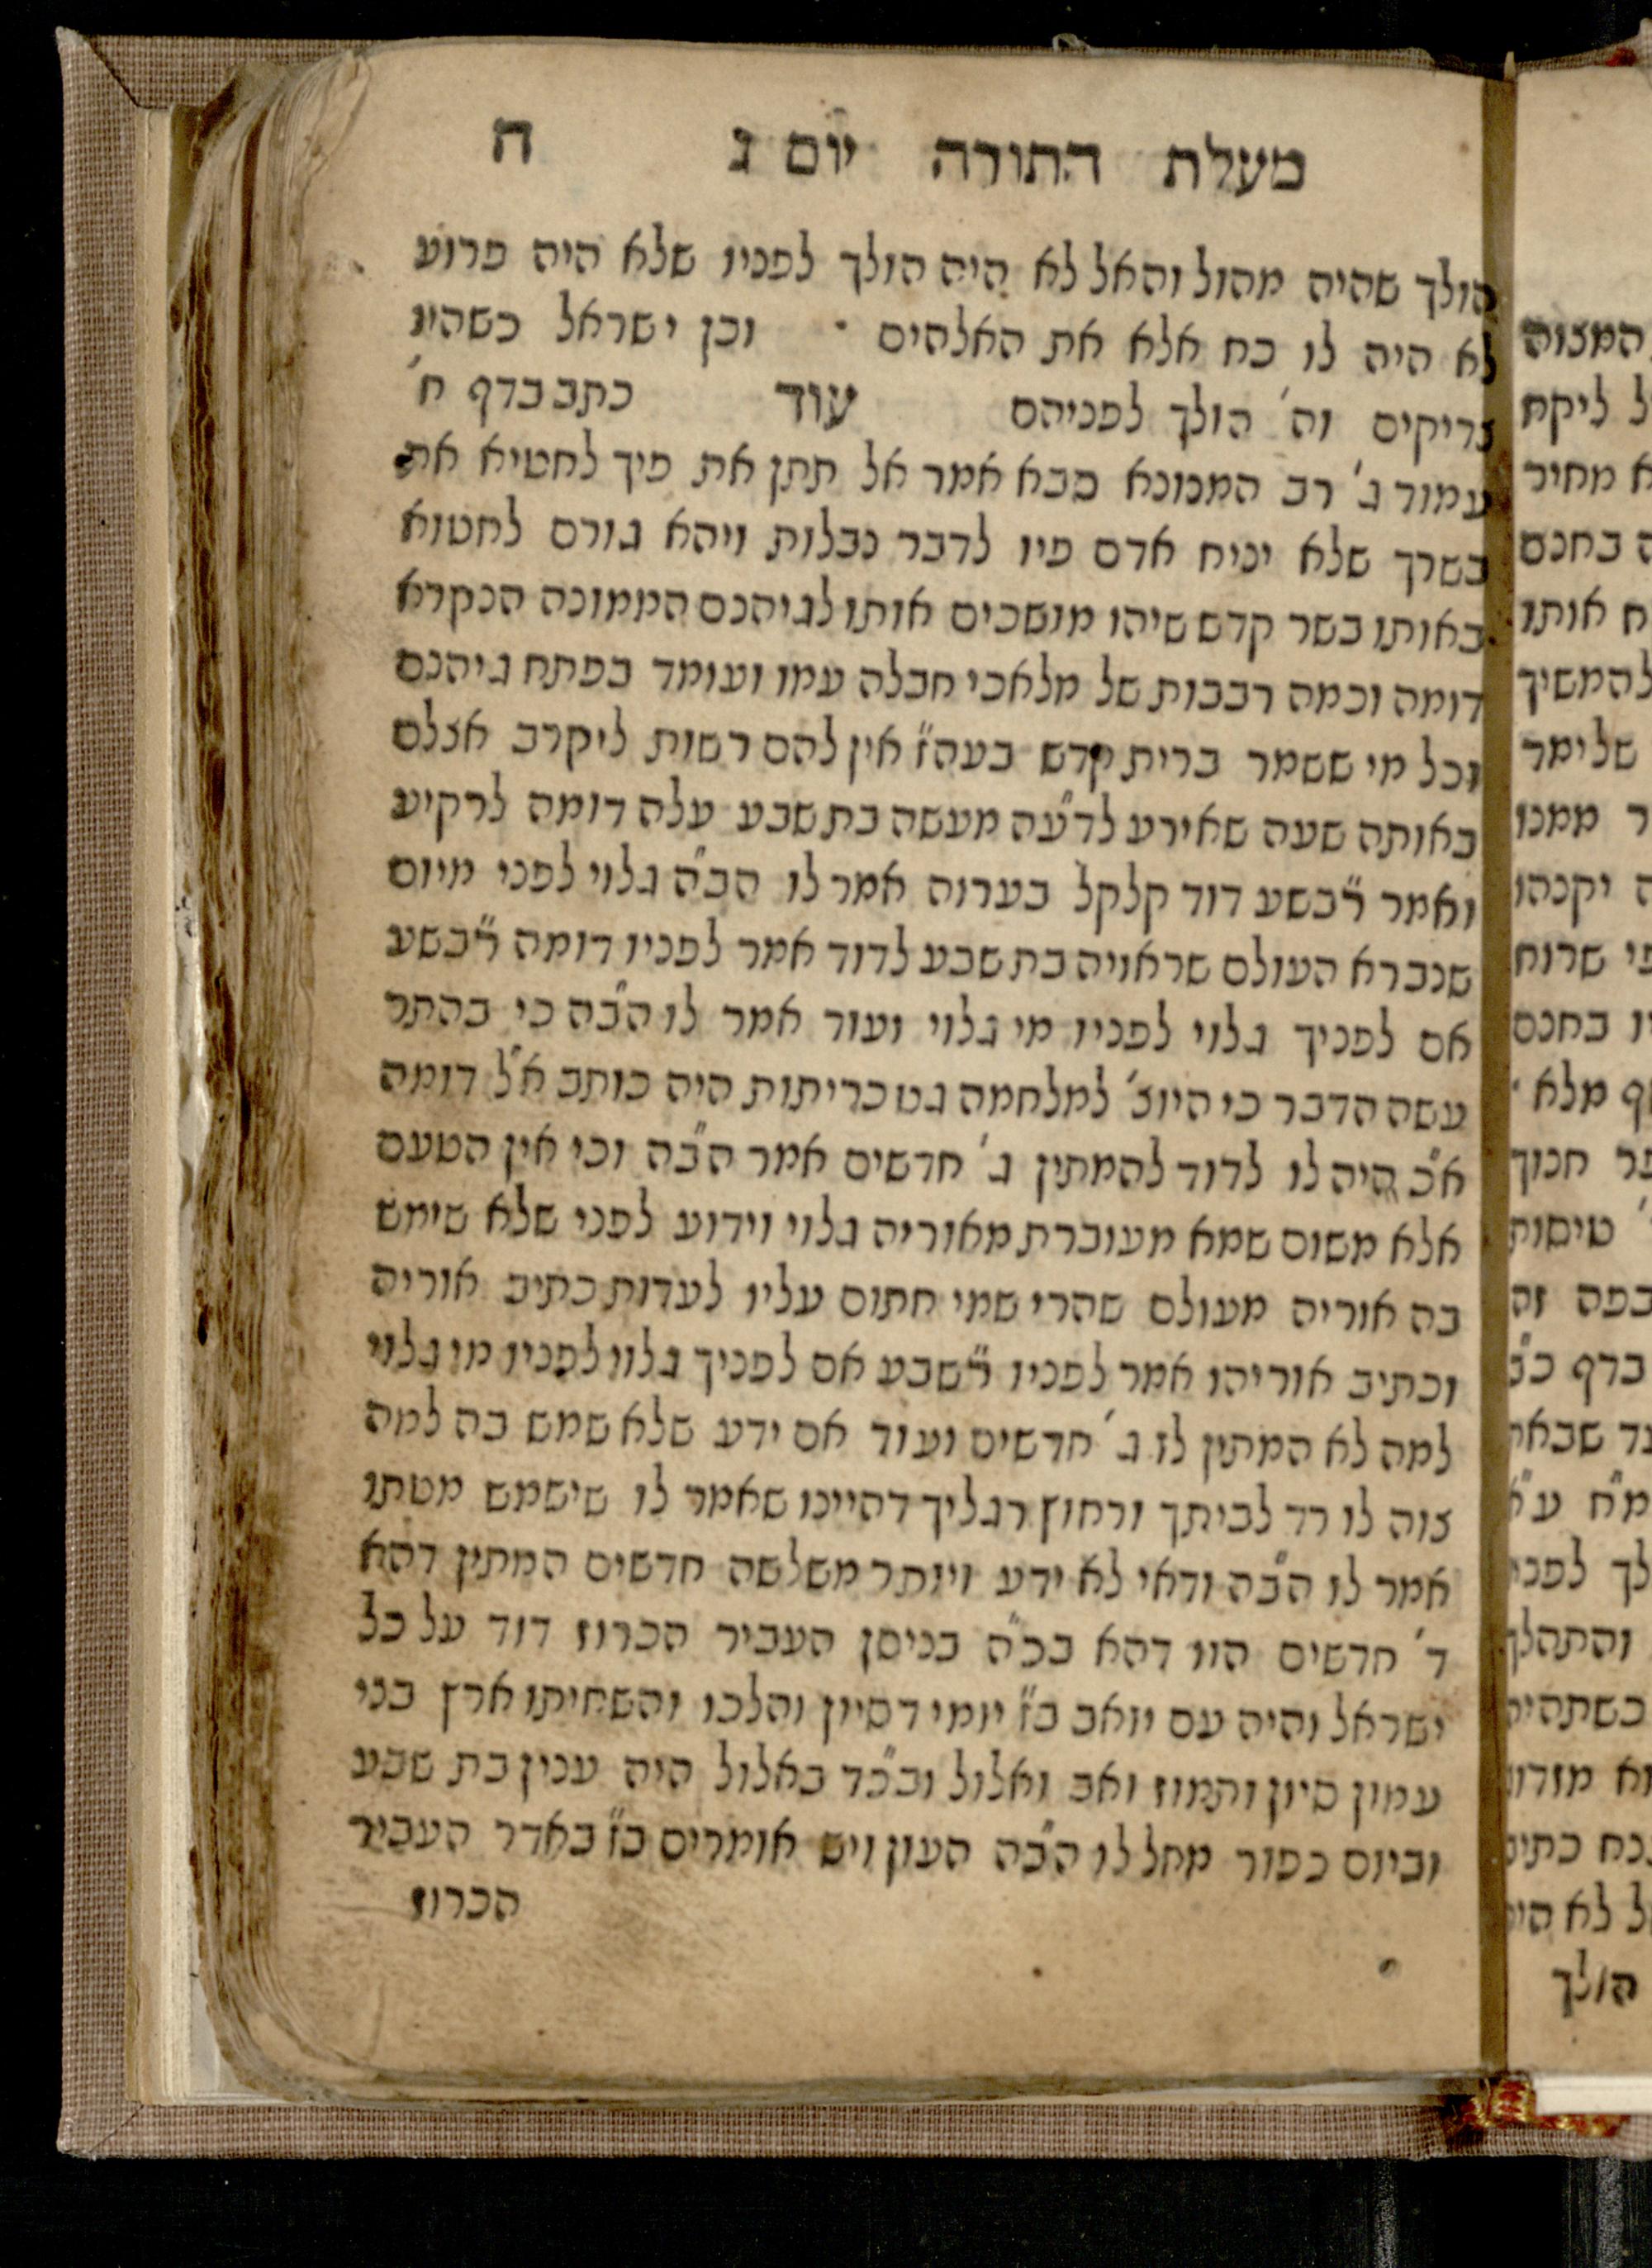 מעלת התורה יום ג ח
הולך שהיה מהול והאל לא היה הולך לפניו שלא היה פרוע
לא היה לו כח אלא את האלהים · וכן ישראל כשהיו
צריקים וה' הולך לפניהם עוד כתב בדף ח'
עמוד ג' רב המנונא סבא אמר אל תתן את פיך לחטיא את
בשרך שלא יניח אדם פיו לדבר נבלות ויהא גורם לחטוא
באותו בשר קדש שיהו מושכים אותו לגיהנם הממונה הנקרא
דומה וכמה רבבות של מלאכי חבלה עמו ועומד בפתח גיהנם
וכל מי ששמר ברית קדש בעה"ז אין להם רשות ליקרב אצלם
באותה שעה שאירע לד"עה מעשה בת שבע עלה דומה לרקיע
ואמר ר"בשע דוד קלקל בערוה אמר לו הב"ה גלוי לפני מיום
שנברא העולם שראויה בת שבע לדוד אמר לפניו דומה ר"בשע
אם לפניך גלוי לפניו מי גלוי ועוד אמר לו ה"בה כי בהתר
עשה הדבר כי היוצ' למלחמה גט כריתות היה כותב א"ל דומה
א"כ היה לו לדוד להמתין ג' חדשים אמר ה"בה וכי אין הטעם
אלא משום שמא מעוברת מאוריה גלוי וידוע לפני שלא שימש
בה אוריה מעולם שהרי שמי חתום עליו לעדות כתיב אוריה
וכתיב אוריהו אמר לפניו ר"שבע אם לפניך גלוי לפניו מי גלוי
למה לא המתין לו ג' חדשים ועוד אם ידע שלא שמש בה למה
צוה לו רד לביתך ורחוץ רגליך דהיינו שאמר לו שישמש מטתו
אמר לו ה"בה ודאי לא ידע ויותר משלשה חדשים המתין דהא
ד' חדשים הוו דהא בכ"ה בניסן העביר הכרוז דוד על כל
ישראל והיה עם יואב ב"ז יומי דסיון והלכו והשחיתו ארץ בני
עמון סיון ותמוז ואב ואלול ובכ"ד באלול היה ענין בת שבע
וביום כפור מחל לו ה"בה העון ויש אומרים ב"ז באדר העביר
הכרוז
המצוה
ל ליקח
א מחיר
ה בחכם
ח אותו
להמשיך
שלימד
ר ממנו
ה יקנהו
פי שרוח
יו בחכם
ף מלא ·
חנוך
טיסות
בפה זה
בדף כ"ג
שבאת
מ"ח ע"א
לך לפני
והתהלך
כשתהיה
א מזדוו
נכח כתיב
ל לא היה
הולך